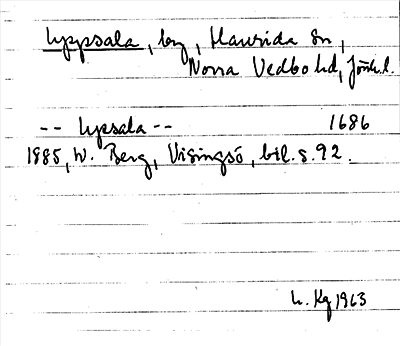 Uppsala, by, Haurida sn,
Norra Vedbo hd, Jönk.l.
-- Upsala -- 1686
1885, W. Berg, Visingsö, bil. s. 92.
L. Kg 1963